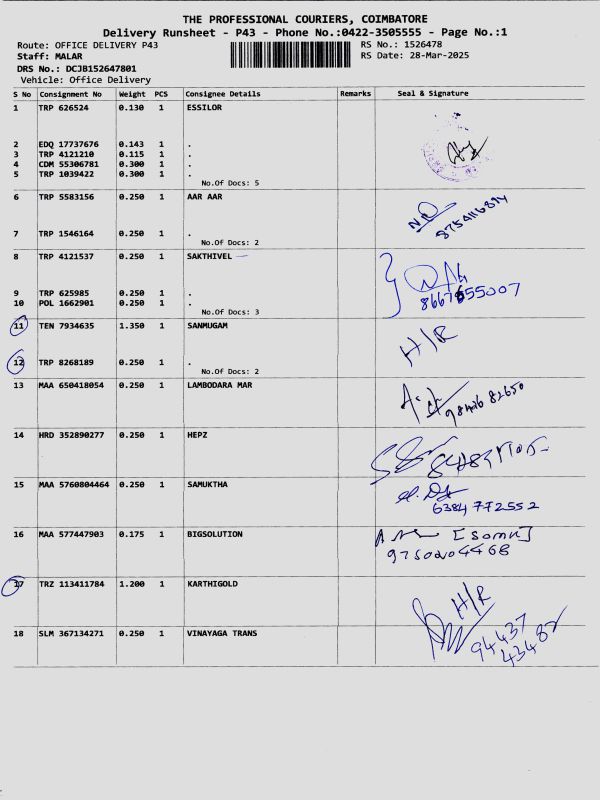 THE PROFESSIONAL COURIERS, COIMBATORE
Delivery Runsheet - P43 - Phone No.:0422-3505555 - Page No.:1
Route: OFFICE DELIVERY P43 RS No.: 1526478
Staff: MALAR RS Date: 28-Mar-2025
DRS No.: DCJB152647801
Vehicle: Office Delivery
S No Consignment No Weight PCS Consignee Details Remarks Seal & Signature
1 TRP 626524 0.130 1 ESSILOR
2 EDQ 17737676 0.143 1 .
3 TRP 4121210 0.115 1 .
4 CDM 55306781 0.300 1 .
5 TRP 1039422 0.300 1 .
No.Of Docs: 5
6 TRP 5583156 0.250 1 AAR AAR
7 TRP 1546164 0.250 1 .
No.Of Docs: 2
8 TRP 4121537 0.250 1 SAKTHIVEL
9 TRP 625985 0.250 1 .
10 POL 1662901 0.250 1 .
8667655007
No.Of Docs: 3
11 TEN 7934635 1.350 1 SANMUGAM
H/R
12 TRP 8268189 0.250 1 .
No.Of Docs: 2
13 MAA 650418054 0.250 1 LAMBODARA MAR
14 HRD 352890277 0.250 1 HEPZ
15 MAA 5760804464 0.250 1 SAMUKTHA
6384 772552
16 MAA 577447903 0.175 1 BIGSOLUTION
[Somu]
9750204468
17 TRZ 113411784 1.200 1 KARTHIGOLD
H/R
18 SLM 367134271 0.250 1 VINAYAGA TRANS
94437
43482